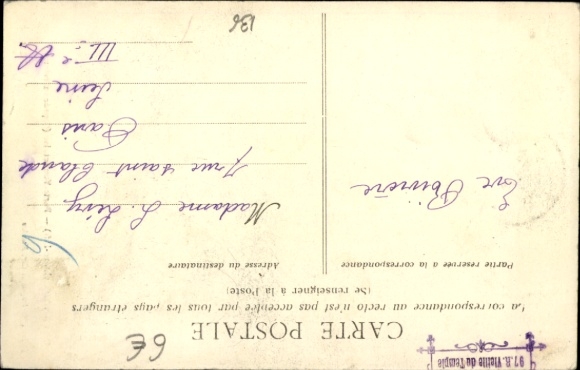 97, R. Vieille du Temple
6€
CARTE POSTALE
La correspondance au recto n'est pas acceptée par tous les pays étrangers
(Se renseigner à la Poste)
Partie réservée à la correspondance
Adresse du destinataire
Madame L. Lévy
7 rue Saint Claude
Paris
Seine
III e